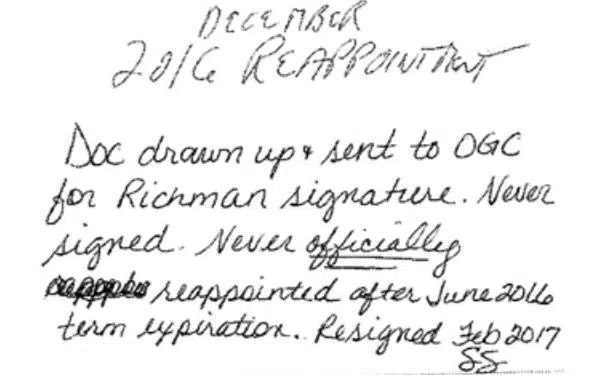 DECEMBER
2016 REAPPOINTMENT
Doc drawn up & sent to OGC
for Richman signature. Never
signed. Never officially
reappointed after June 2016
term expiration. Resigned Feb 2017
SS